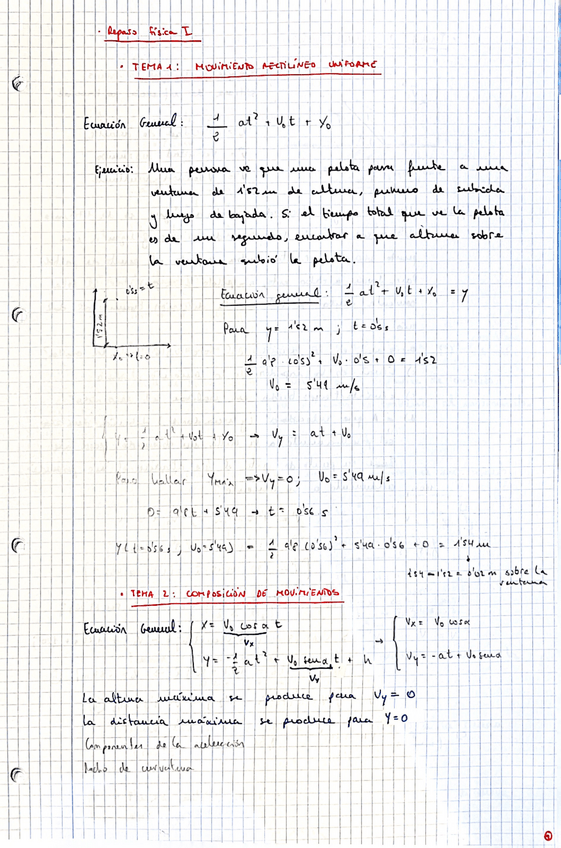 · Repaso física I
· TEMA 1: MOVIMIENTO RECTILÍNEO UNIFORME
Ecuación General: 1/2 at² + V₀t + Y₀
Ejercicio: Una persona ve que una pelota pasa frente a una
ventana de 1'52 m de altura, primero de subida
y luego de bajada. Si el tiempo total que ve la pelota
es de un segundo, encontrar a que altura sobre
la ventana subió la pelota.
0's = t
1'52 m
Ecuación general: 1/2 at² + V₀t + Y₀ = y
Para y = 1'52 m ; t = 0's s
1/2 9'8 (0's)² + V₀ · 0's + 0 = 1'52
V₀ = 5'49 m/s
Y = 1/2 at² + V₀t + Y₀ → Vy = at + V₀
Para hallar Ymáx => Vy = 0; V₀ = 5'49 m/s
0 = 9'8t + 5'49 → t = 0's6 s
Y(t=0's6s, V₀=5'49) = 1/2 9'8 (0's6)² + 5'49 · 0's6 + 0 = 1'54 m
1'54 - 1'52 = 0'02 m sobre la
ventana
· TEMA 2: COMPOSICIÓN DE MOVIMIENTOS
Ecuación General: { X = V₀ cos α t → { Vx = V₀ cos α
Vx
Y = -1/2 at² + V₀ sen α t + h Vy = -at + V₀ sen α
Vy
La altura máxima se produce para Vy = 0
La distancia máxima se produce para Y = 0
Componentes de la aceleración
Radio de curvatura